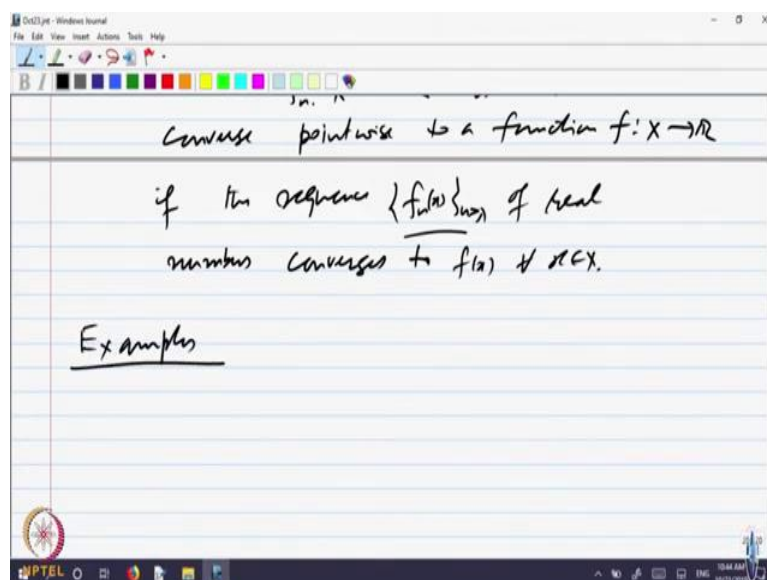 Oct23.jnt - Windows Journal
File Edit View Insert Actions Tools Help
B I
converse pointwise to a function f: X → R
if the sequence {fₙ(x)}ₙ≥₁ of real
numbers converges to f(x) ∀ x∈X.
Examples
NPTEL
ENG 10:44 AM